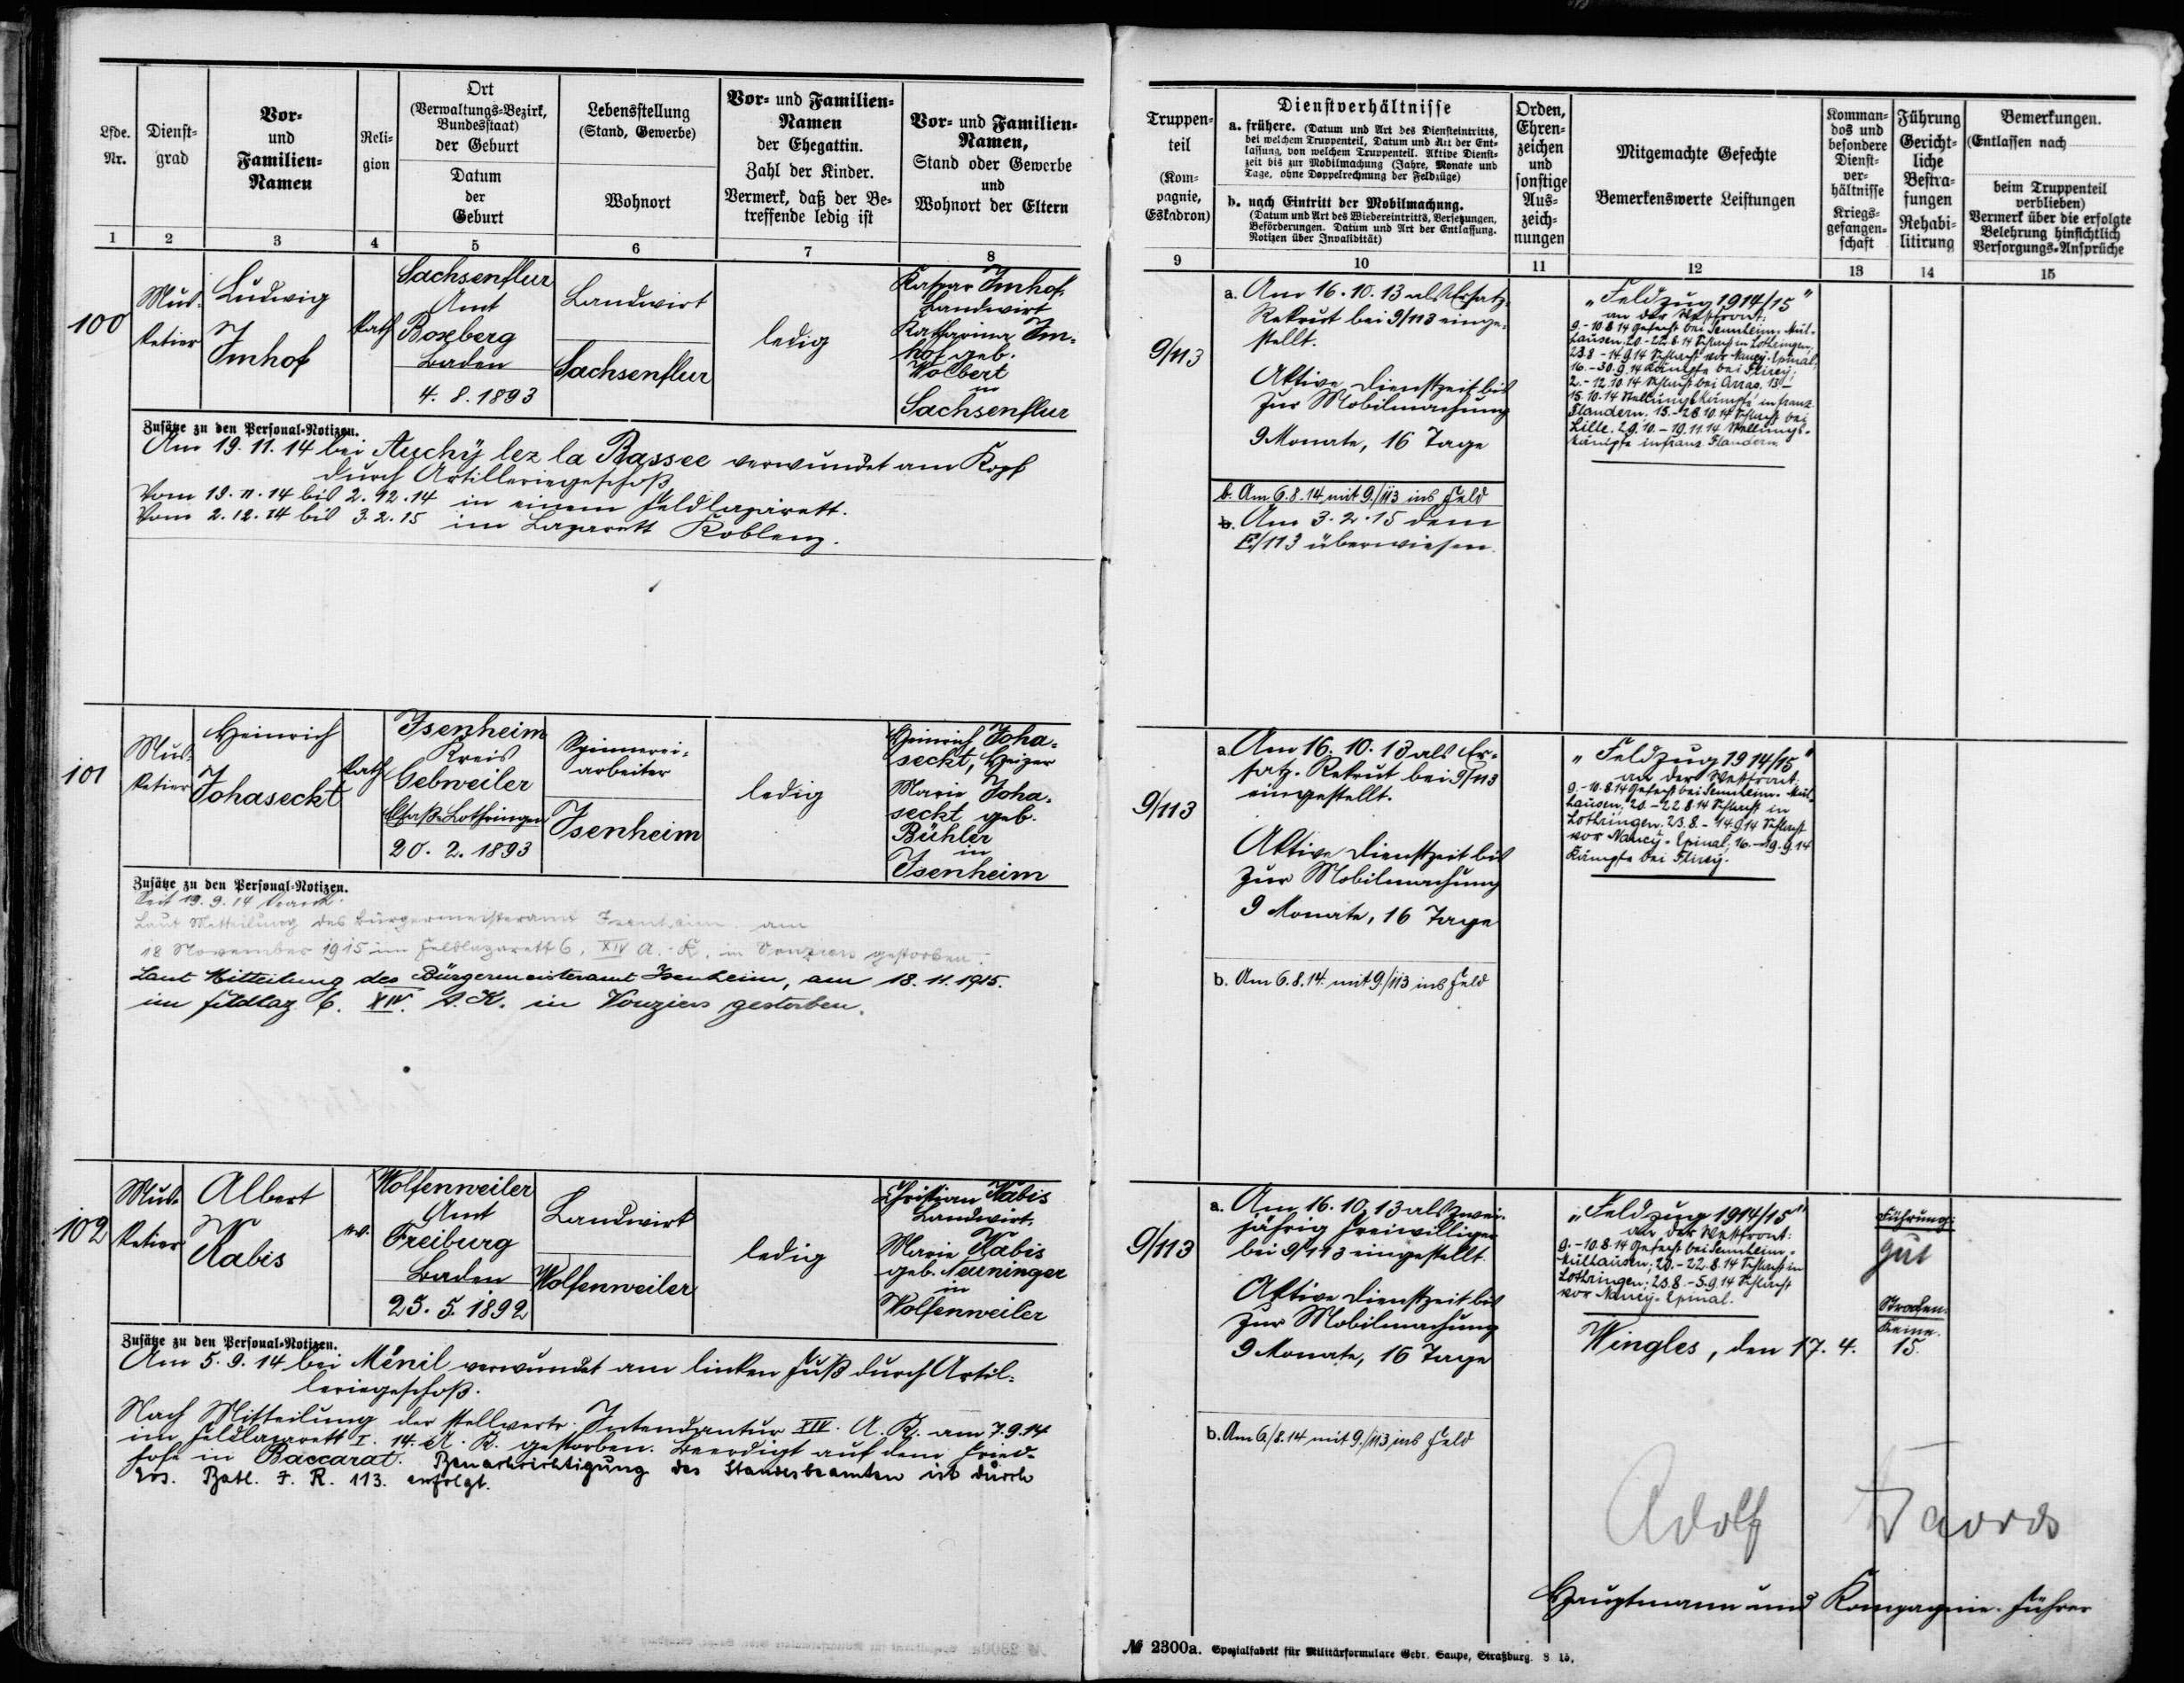 Lfde.
Nr.
Dienst-
grad
Vor-
und
Familien-
Namen
Reli-
gion
Ort
(Verwaltungs-Bezirk,
Bundesstaat)
der Geburt
Datum
der
Geburt
Lebensstellung
(Stand, Gewerbe)
Wohnort
Vor- und Familien-
Namen
der Ehegattin.
Zahl der Kinder.
Vermerk, daß der Be-
treffende ledig ist
Vor- und Familien-
Namen,
Stand oder Gewerbe
und
Wohnort der Eltern
1 2 3 4 5 6 7 8
100
Mus-
ketier
Ludwig
Imhof
kath
Sachsenflur
Amt
Boxberg
Baden
4. 8. 1893
Landwirt
Sachsenflur
ledig
Kaspar Imhof,
Landwirt
Katharina Im-
hof geb.
Wolbert
in
Sachsenflur
Zusätze zu den Personal-Notizen.
Am 19. 11. 14 bei Auchy lez la Bassee verwundet am Kopf
durch Artilleriegeschoß
Vom 19. 11. 14 bis 2. 12. 14 in einem Feldlazarett.
Vom 2. 12. 14 bis 3. 2. 15 im Lazarett Koblenz.
101
Mus-
ketier
Heinrich
Johaseckt
kath
Isenheim
Kreis
Gebweiler
Elsaß-Lothringen
20. 2. 1893
Spinnerei-
arbeiter
Isenheim
ledig
Heinrich Joha-
seckt, Heizer
Marie Joha-
seckt geb.
Bühler
in
Isenheim
Zusätze zu den Personal-Notizen.
Seit 19. 9. 14 krank.
Laut Mitteilung des Bürgermeisteramt Isenheim am
18 November 1915 im Feldlazarett 6, XIV A. K. in Vouziers gestorben.
Laut Mitteilung des Bürgermeisteramt Isenheim, am 18. 11. 1915.
im Feldlaz 6. XIV. A. K. in Vouziers gestorben.
102
Mus-
ketier
Albert
Kabis
ev.
Wolfenweiler
Amt
Freiburg
Baden
25. 5. 1892
Landwirt
Wolfenweiler
ledig
Christian Kabis
Landwirt,
Marie Kabis
geb. Neuninger
in
Wolfenweiler
Zusätze zu den Personal-Notizen.
Am 5. 9. 14 bei Ménil verwundet am linken Fuß durch Artil-
leriegeschoß.
Nach Mitteilung der stellvertr. Intendantur XIV. A. K. am 7. 9. 14
im Feldlazarett I. 14. A. K. gestorben. Beerdigt auf dem Fried-
hofe in Baccarat. Benachrichtigung des Standesbeamten ist durch
Ers. Batl. I. R. 113. erfolgt.
Truppen-
teil
(Kom-
pagnie,
Eskadron)
Dienstverhältnisse
a. frühere. (Datum und Art des Diensteintritts,
bei welchem Truppenteil, Datum und Art der Ent-
lassung, von welchem Truppenteil. Aktive Dienst-
zeit bis zur Mobilmachung (Jahre, Monate und
Tage, ohne Doppelrechnung der Feldzüge)
b. nach Eintritt der Mobilmachung.
(Datum und Art des Wiedereintritts, Versetzungen,
Beförderungen. Datum und Art der Entlassung.
Notizen über Invalidität)
Orden,
Ehren-
zeichen
und
sonstige
Aus-
zeich-
nungen
Mitgemachte Gefechte
Bemerkenswerte Leistungen
Komman-
dos und
besondere
Dienst-
ver-
hältnisse
Kriegs-
gefangen-
schaft
Führung
Gericht-
liche
Bestra-
fungen
Rehabi-
litirung
Bemerkungen.
(Entlassen nach
beim Truppenteil
verblieben)
Vermerk über die erfolgte
Belehrung hinsichtlich
Versorgungs-Ansprüche
9 10 11 12 13 14 15
9/113
a. Am 16. 10. 13 als Ersatz-
Rekrut bei 9/113 einge-
stellt.
Aktive Dienstzeit bis
zur Mobilmachung
9 Monate, 16 Tage
b. Am 6. 8. 14 mit 9./113 ins Feld
b. Am 3. 2. 15 dem
E/113 überwiesen.
„Feldzug 1914/15"
an der Westfront:
9.-10.8.14 Gefecht bei Sennheim-Mül-
hausen; 20.-22.8.14 Schlacht in Lothringen;
23.8.-14.9.14 Schlacht vor Nancy-Epinal;
16.-30.9.14 Kämpfe bei Flirey;
2.-12.10.14 Schlacht bei Arras, 13.-
15.10.14 Stellungskämpfe in franz.
Flandern. 15.-28.10.14 Schlacht bei
Lille. 29.10.-19.11.14 Stellungs-
kämpfe in franz. Flandern
9/113
a. Am 16. 10. 13 als Er-
satz-Rekrut bei 9/113
eingestellt.
Aktive Dienstzeit bis
zur Mobilmachung
9 Monate, 16 Tage
b. Am 6. 8. 14. mit 9./113 ins Feld
„Feldzug 1914/15"
an der Westfront:
9.-10.8.14 Gefecht bei Sennheim-Mül-
hausen; 20.-22.8.14 Schlacht in
Lothringen; 23.8.-14.9.14 Schlacht
vor Nancy-Epinal; 16.-19.9.14
Kämpfe bei Flirey.
9/113
a. Am 16. 10. 13 als Zwei-
jährig Freiwilliger
bei 9/113 eingestellt.
Aktive Dienstzeit bis
zur Mobilmachung
9 Monate, 16 Tage
b. Am 6./8. 14 mit 9./113 ins Feld
„Feldzug 1914/15"
an der Westfront:
9.-10.8.14 Gefecht bei Sennheim-
Mülhausen; 20.-22.8.14 Schlacht in
Lothringen; 23.8.-5.9.14 Schlacht
vor Nancy-Epinal.
Führung:
gut
Strafen:
Keine.
Wingles, den 17. 4. 15.
Adolf
Hauptmann und Kompagnie-Führer
№ 2300a. Spezialfabrik für Militärformulare Gebr. Saupe, Straßburg. 8 15.